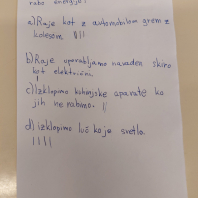 rabo energije?
a) Raje kot z avtomobilom grem z
kolesom. |||
b) Raje uporabljamo navaden skiro
kot električni.
c) Izklopimo kuhinjske aparate ko
jih ne rabimo. ||
d) izklopimo luč ko je svetlo.
||||